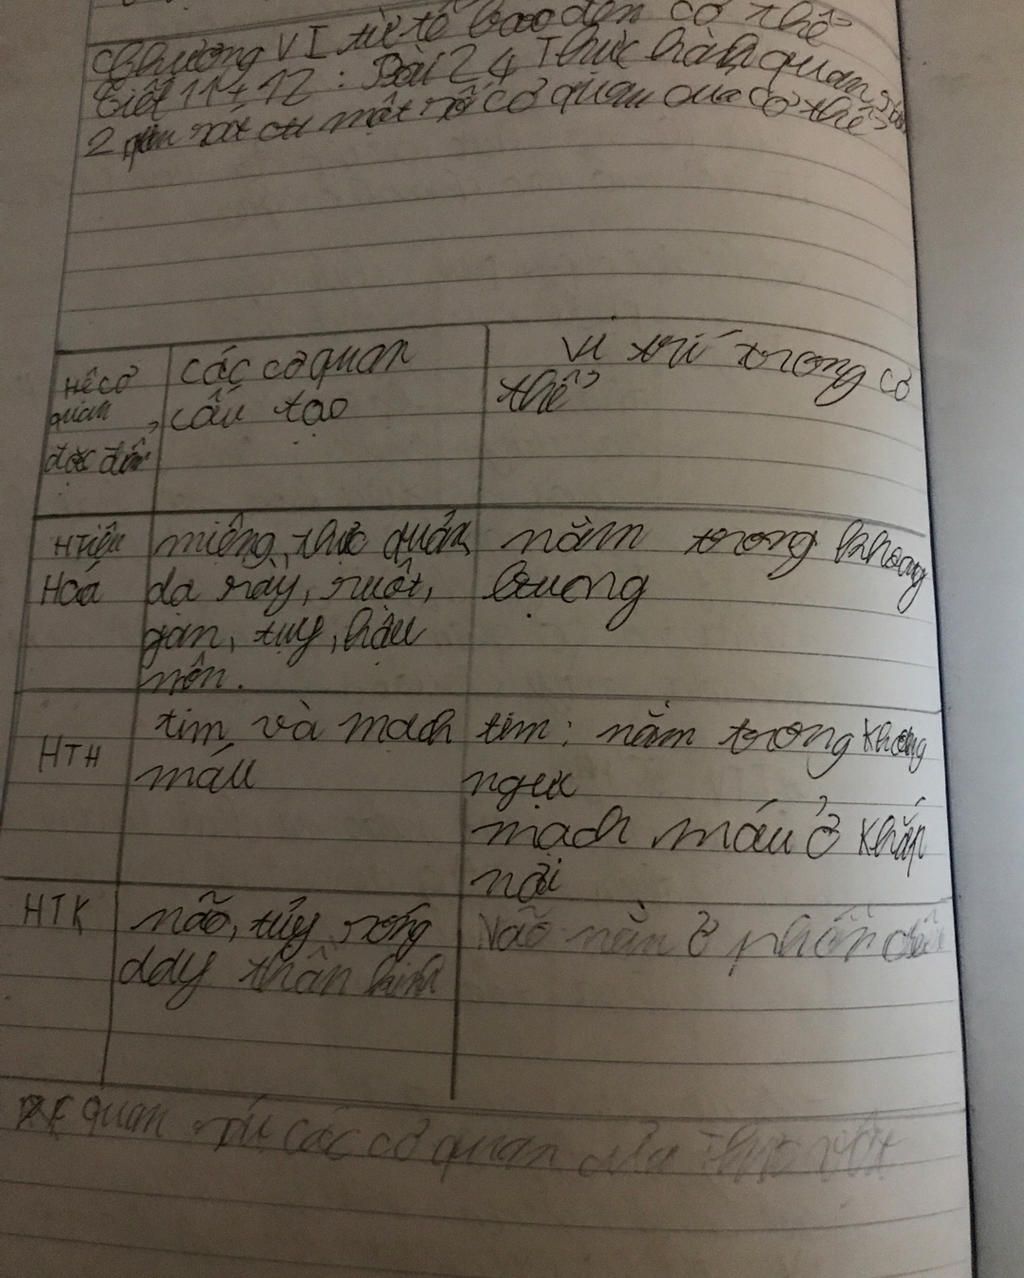 Chương VI từ tế bào đến cơ thể
tiết 11+12: Bài 24 Thực hành quan sát
2 quan sát một số cơ quan của cơ thể
Hệ cơ quan
các cơ quan cấu tạo
vị trí trong cơ thể
HTiêu Hoá
miệng, thực quản,
dạ dày, ruột,
gan, tuỵ, hậu
môn.
nằm trong khoang
bụng
HTH
tim và mạch
máu
tim: nằm trong khoang
ngực
mạch máu ở khắp
nơi
HTK
não, tủy sống
dây thần kinh
Não nằm ở phần đầu
quan các cơ quan